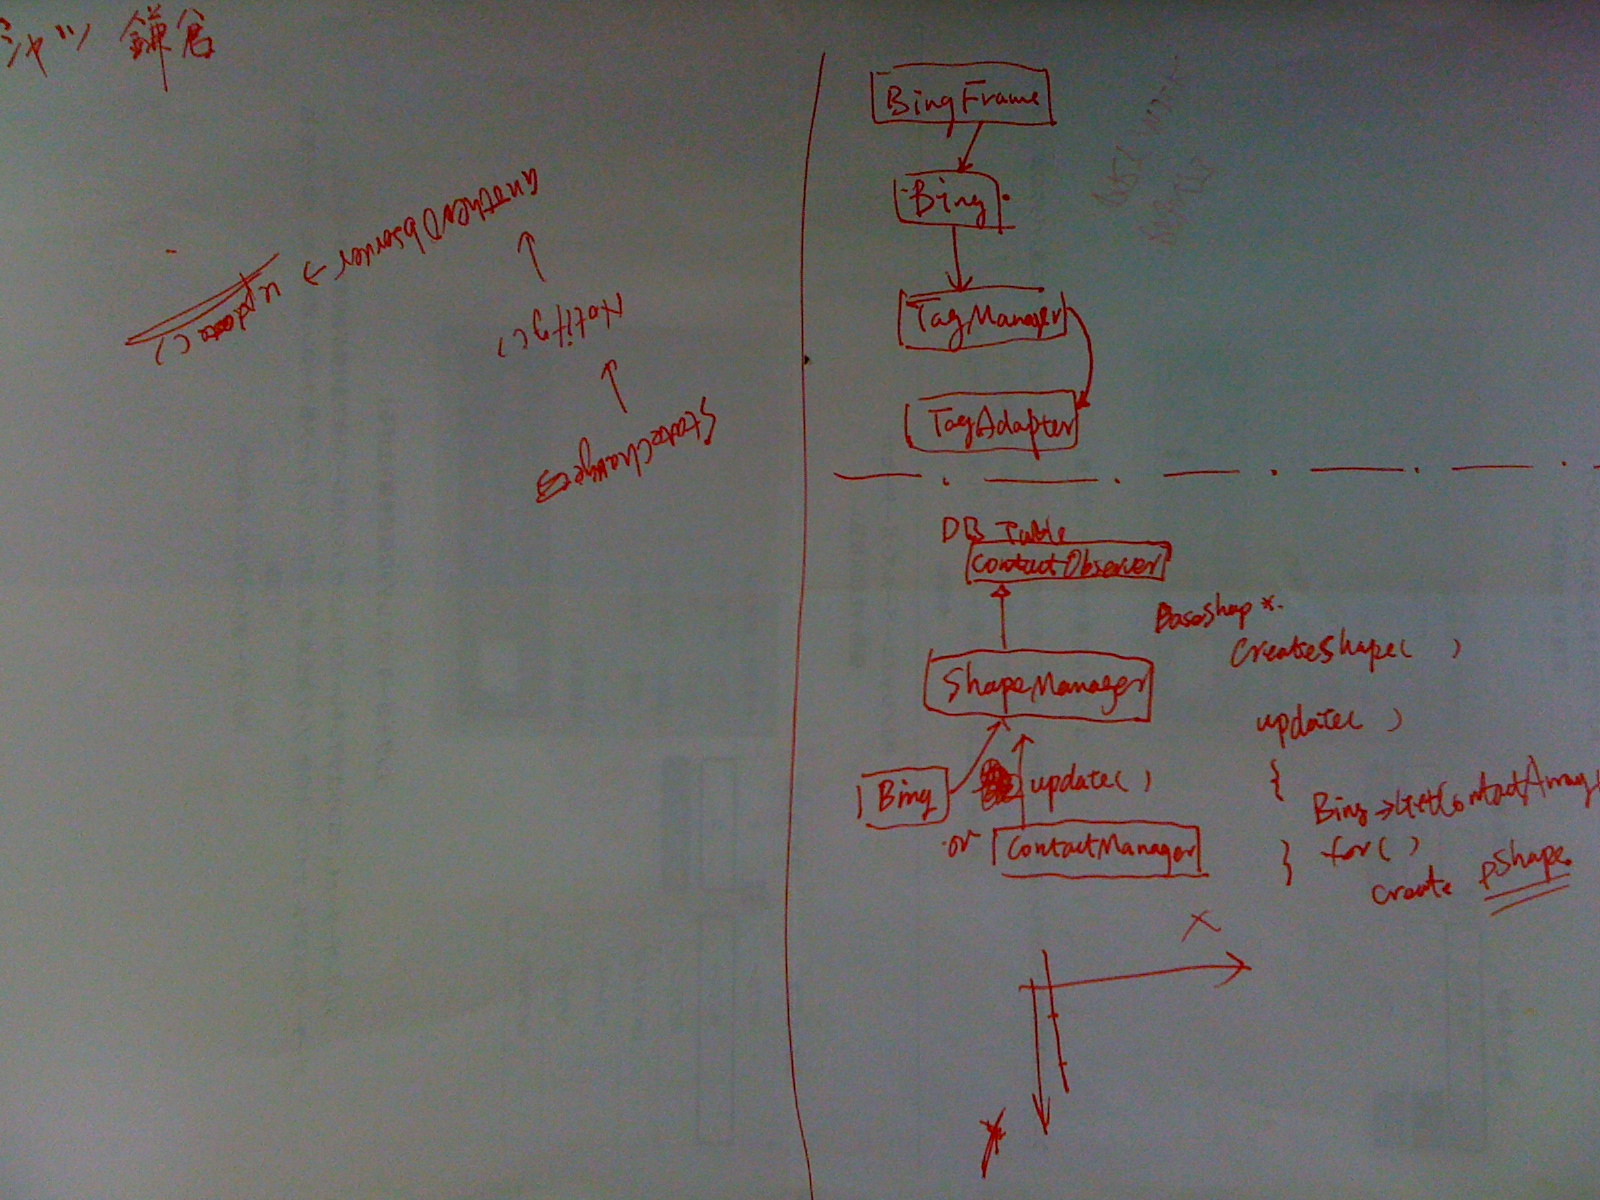 シャツ 鎌倉
StateChanges
Notify()
anotherObserver → update()
BingFrame
Bing
TagManager
TagAdapter
DB Table
ContactObserver
ShapeManager
Bing
update()
or ContactManager
BaseShap *
CreateShape( )
update( )
{
Bing→GetContactArray
for( )
}
create pShape
X